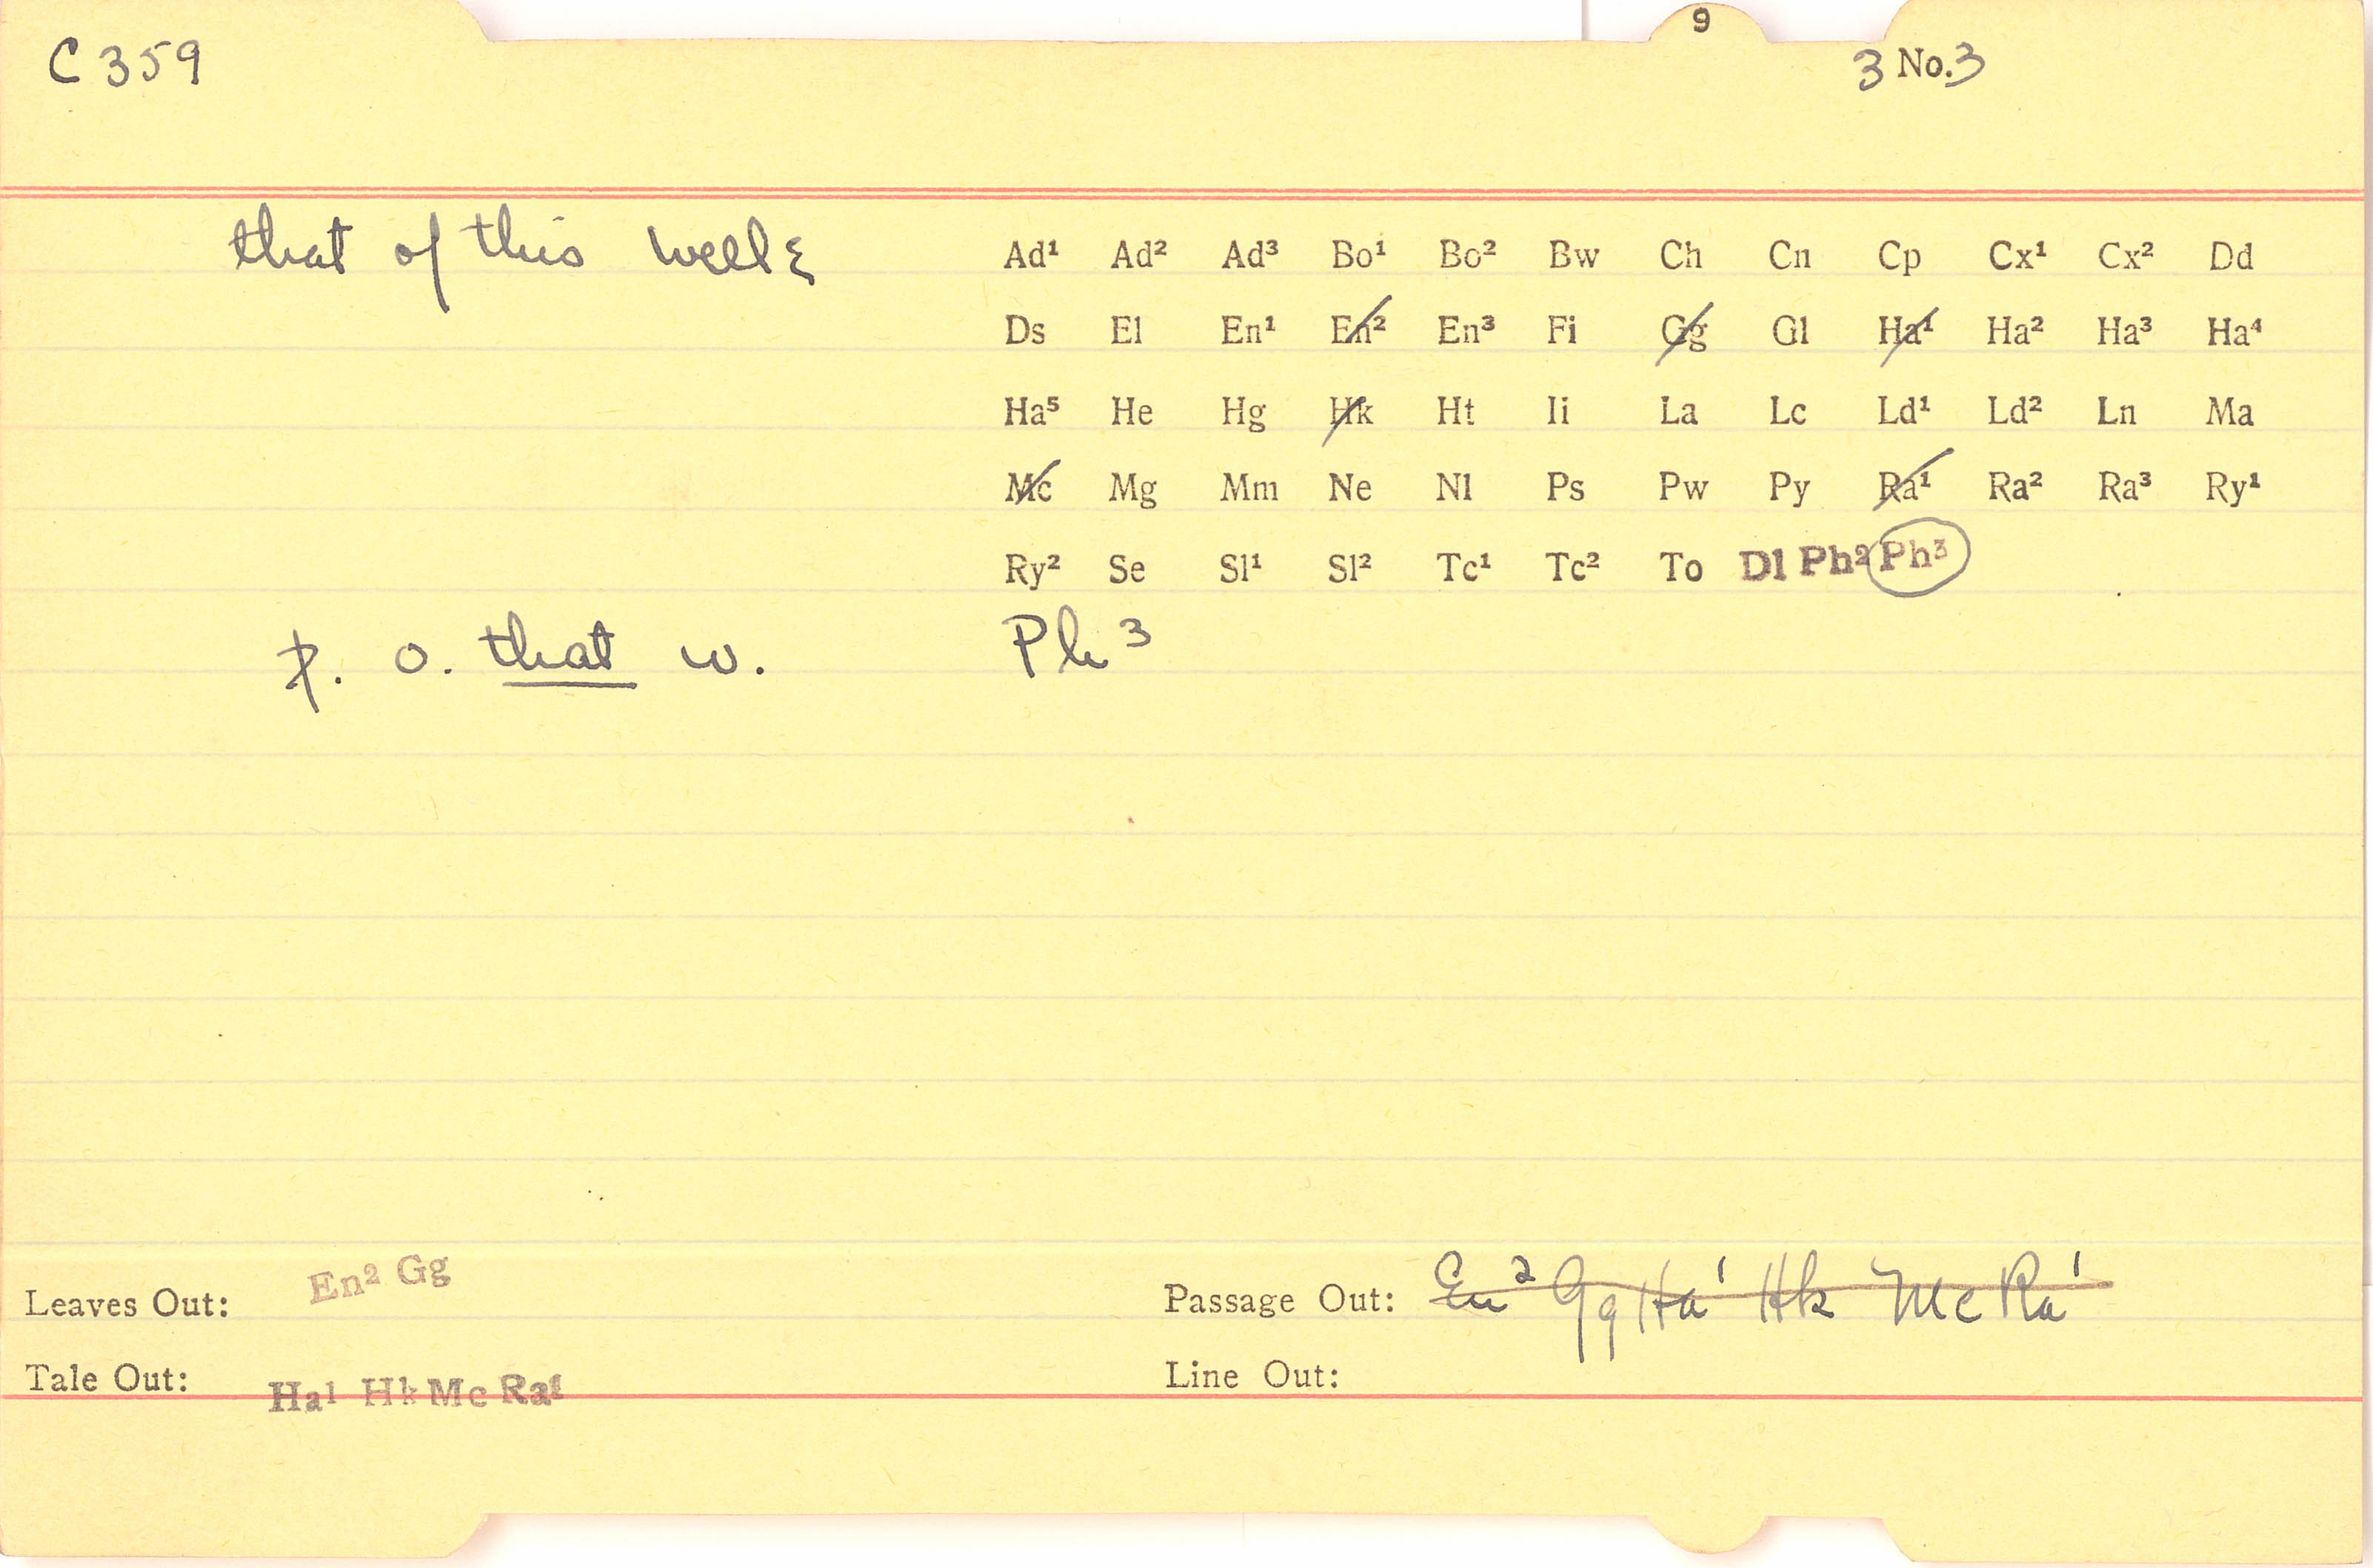 9
C 359
3 No. 3
that of this welle
Ad¹ Ad² Ad³ Bo¹ Bo² Bw Ch Cn Cp Cx¹ Cx² Dd
Ds El En¹ En² En³ Fi Gg Gl Ha¹ Ha² Ha³ Ha⁴
Ha⁵ He Hg Hk Ht Ii La Lc Ld¹ Ld² Ln Ma
Mc Mg Mm Ne Nl Ps Pw Py Ra¹ Ra² Ra³ Ry¹
Ry² Se Sl¹ Sl² Tc¹ Tc² To Dl Ph² Ph³
o. that w. Ph³
Leaves Out: En² Gg
Passage Out: En² Gg Ha¹ Hk Mc Ra¹
Tale Out: Ha¹ Hk Mc Ra¹
Line Out: